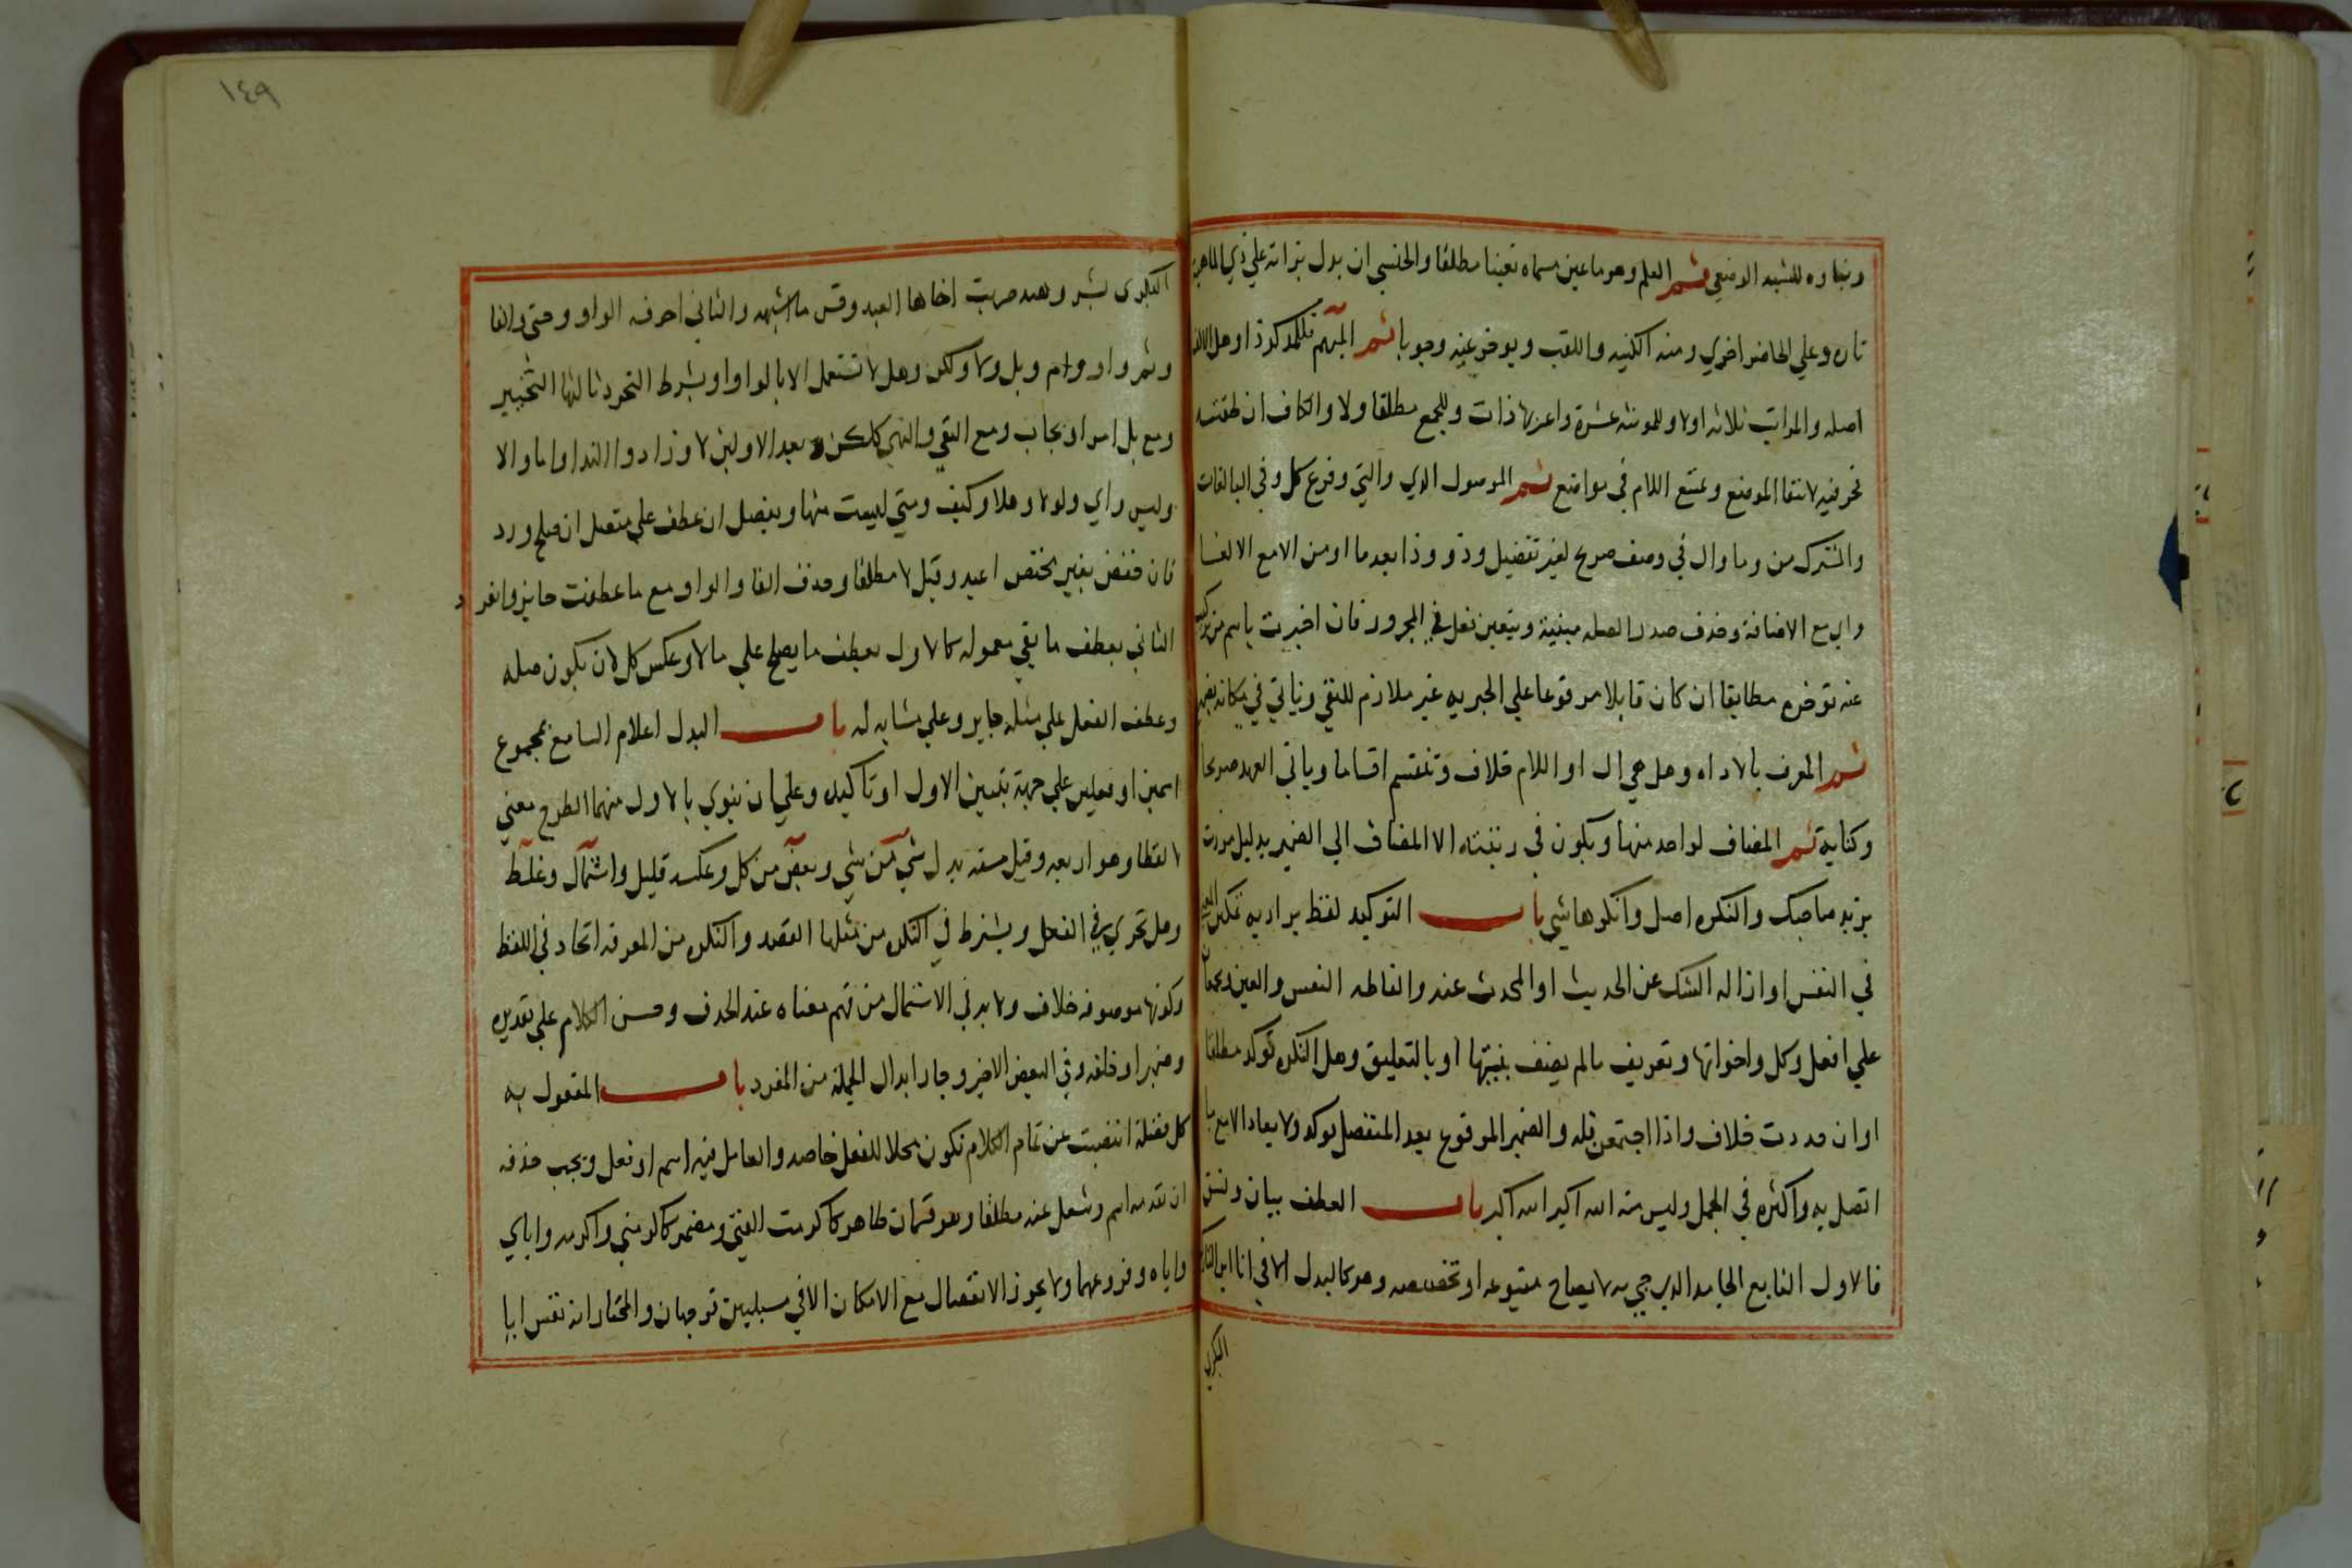 وبناوه للشبه الوضعي ثم العلم وهو ما عين مسماه تعينا مطلقا والجنسي ان يدل بذاته علي ذي الماهية
تاره وعلي الحاضر اخري ومنه الكنيه واللقب ويوخر عنه وجوبا ثم المبهم فللمذكر ذا وهل الالف
اصله والمراتب ثلاثه اولا وللمونثه عشرة واعزبها ذات وللجمع مطلقا ولا والكاف ان لحقته
حرفيه لانتفا الموضع وتمتنع اللام في مواضع ثم الموصول الذي والتي وفرع كل وفي البا لغات
والمشترك من وما وال في وصف صريح لغير تفضيل وذو وذا بعد ما او من الامع الالغا
واي مع الاضافة وحذف صدر الصله مبنية ويتعين نقل في المجرور فان اخبرت باسم من تركيب
عنه توخره مطابقا ان كان قابلا مرفوعا علي الخبريه غير ملازم للنفي وتاتي في مكانه بضمير
ثم المعرف بالاداه وهل هي ال او اللام خلاف وتنقسم اقساما وياتي العهد صريحا
وكناية ثم المضاف لواحد منها ويكون في رتبته الا المضاف الي الضمير بدليل مررت
بزيد صاحبك والنكره اصل وانكرها شي باب التوكيد لفظ يراد به تمكين المعني
في النفس او ازاله الشك عن الحديث او المحدث عنه والفاظه النفس والعين ويجمعان
علي افعل وكل واخواتها وتعريف مالم يضف بنيتها او بالتعليق وهل النكره توكد مطلقا
او ان حددت خلاف واذا اجتمعن فله والضمير المرفوع بعد المنفصل يوكد ولا يعاد الا مع ما
اتصل به واكثره في الجمل وليس منه الله اكبر الله اكبر باب العطف بيان ونسق
فالاول التابع الجامد الذي جي به لايضاح متبوعه او تخصيصه وهو كالبدل الا في انا ابن التارك
البكري
البكري بشر وهند ضربت اخاها العبد وقس ما اشبهه والثاني احرفه الواو وحتي والفا
وثم واو وام وبل ولا ولكن وهل لا تستعمل الا بالواو او بشرط التجرد ثالثها التخيير
ومع بل امر او ايجاب ومع النفي والنهي كلكن وبعد الاولين لا وزاد والندا واما والا
وليس واي ولولا وهلا وكيف ومتي ليست منها ويفصل ان عطف علي متصل ان صلح ورد
فان خفض بغير مختص اعيد وقبل لا مطلقا وحذف الفا والواو مع ما عطفت جايز وانفرد
الثاني بعطف ما بقي معموله كالاول بعطف ما يصلح علي مالا وعكس كل لان يكون صله
وعطف الفعل علي مثله جايز وعلي مشابه له باب البدل اعلام السامع بمجموع
اسمين او فعلين علي جهة تبيين الاول او تاكيده وعلي ان ينوي بالاول منهما الطرح معني
لا لفظا وهو اربعه وقيل سته بدل شي من شي وبعض من كل وعكسه قليل واشتمال وغلط
وهل تجري في الفعل ويشترط في النكره من مثلها القصد والنكره من المعرفه اتحاد في اللفظ
وكونها موصوفه خلاف ولابد في الاشتمال من فهم معناه عند الحذف وحسن الكلام علي تقديره
وضمير او خلفه وفي البعض الاخير وجاز ابدال الجملة من المفرد باب المفعول به
كل فضلة انتصبت عن تمام الكلام تكون محلا للفعل خاصه والعامل فيه اسم او فعل ويجب حذفه
ان تقدمه اسم وشغل عنه مطلقا وهو قسمان ظاهر كاكرمت الفتي ومضمر كاكرمني واكرمه واياي
واياه وفروعهما ولا يجوز الانفصال مع الامكان الا في مسيلتين توجهان والمختار انه نفس ايا
١٤٩